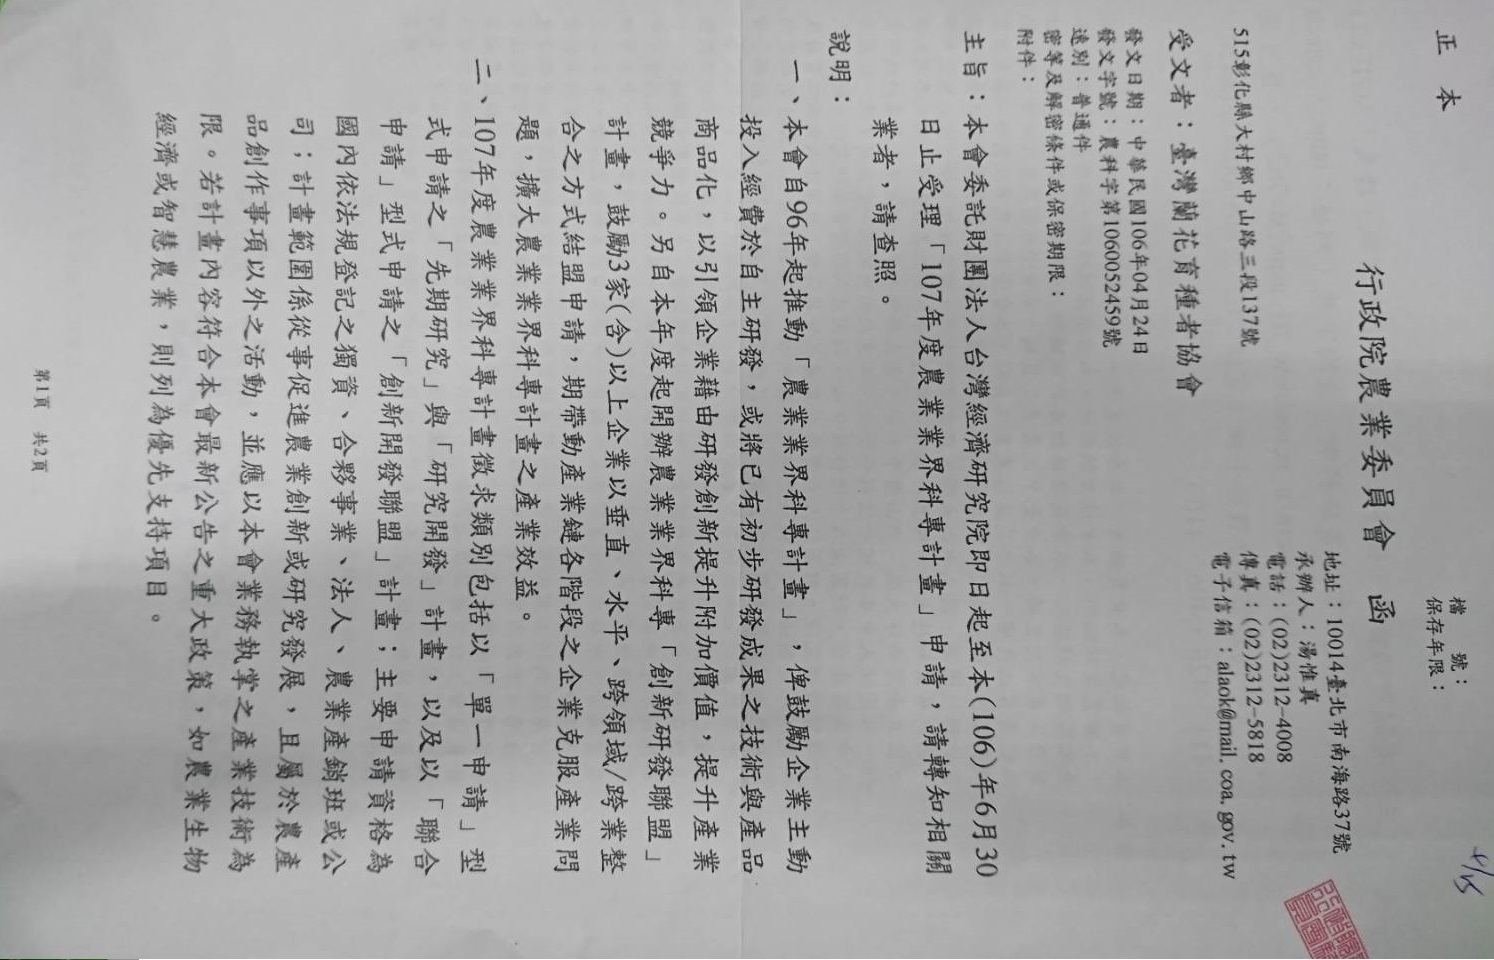 正本
檔　　號：
保存年限：
行政院農業委員會　函
地址：10014臺北市南海路37號
承辦人：湯惟真
電話：(02)2312-4008
傳真：(02)2312-5818
電子信箱：alaok@mail.coa.gov.tw
515彰化縣大村鄉中山路三段137號
受文者：臺灣蘭花育種者協會
發文日期：中華民國106年04月24日
發文字號：農科字第1060052459號
速別：普通件
密等及解密條件或保密期限：
附件：
主旨：本會委託財團法人台灣經濟研究院即日起至本(106)年6月30
日止受理「107年度農業業界科專計畫」申請，請轉知相關
業者，請查照。
說明：
一、本會自96年起推動「農業業界科專計畫」，俾鼓勵企業主動
投入經費於自主研發，或將已有初步研發成果之技術與產品
商品化，以引領企業藉由研發創新提升附加價值，提升產業
競爭力。另自本年度起開辦農業業界科專「創新研發聯盟」
計畫，鼓勵3家(含)以上企業以垂直、水平、跨領域/跨業整
合之方式結盟申請，期帶動產業鏈各階段之企業克服產業問
題，擴大農業業界科專計畫之產業效益。
二、107年度農業業界科專計畫徵求類別包括以「單一申請」型
式申請之「先期研究」與「研究開發」計畫，以及以「聯合
申請」型式申請之「創新開發聯盟」計畫；主要申請資格為
國內依法規登記之獨資、合夥事業、法人、農業產銷班或公
司；計畫範圍係從事促進農業創新或研究發展，且屬於農產
品創作事項以外之活動，並應以本會業務執掌之產業技術為
限。若計畫內容符合本會最新公告之重大政策，如農業生物
經濟或智慧農業，則列為優先支持項目。
第1頁　共2頁